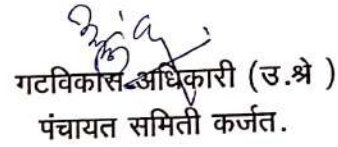 गटविकास अधिकारी (उ.श्रे )
पंचायत समिती कर्जत.